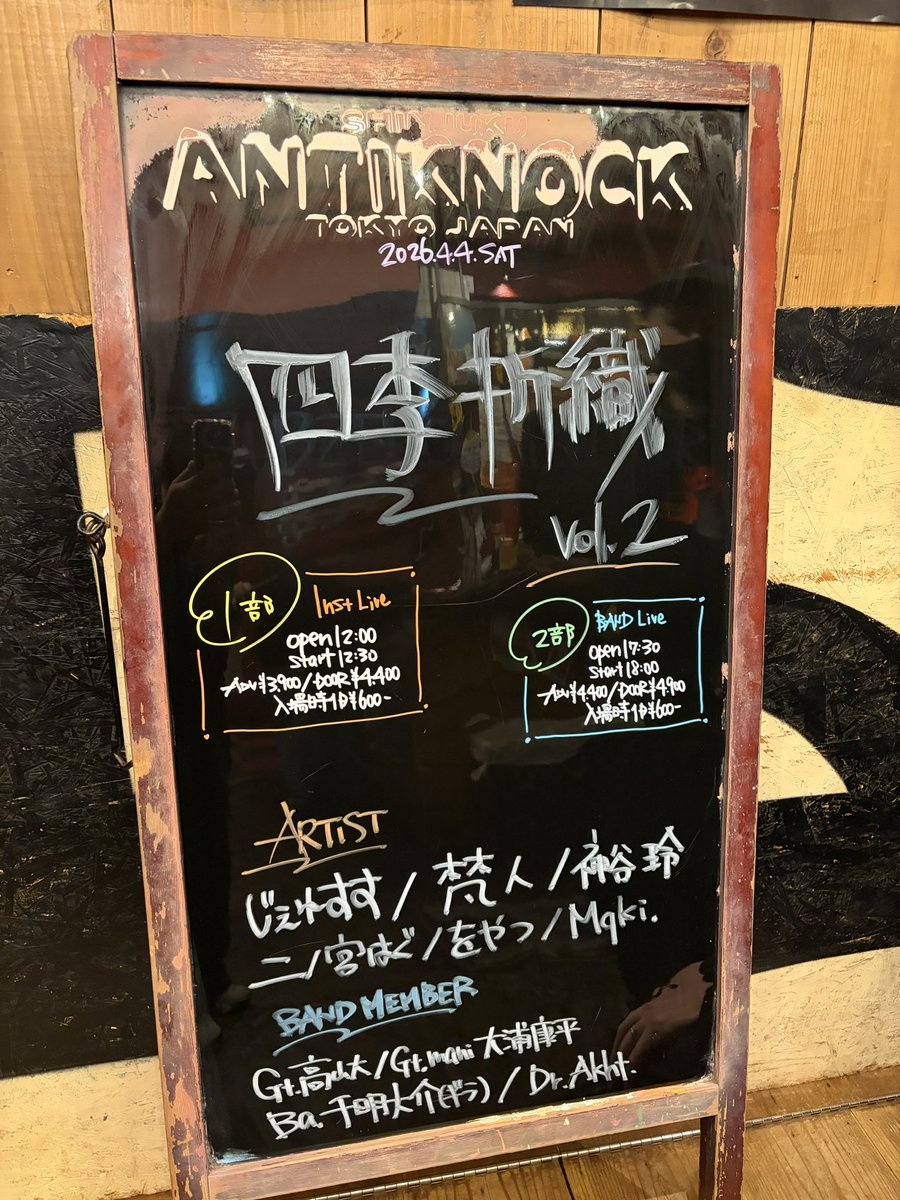 SHINJUKU
ANTIKNOCK
TOKYO JAPAN
2026.4.4.SAT
四季折織
Vol.2
1部 Inst Live
open12:00
start12:30
ADV¥3,900/DOOR¥4,400
入場時1D¥600-
2部 BAND Live
open17:30
start18:00
ADV¥4,400/DOOR¥4,900
入場時1D¥600-
ARTiST
じぇりすず/梵人/裕玲
二ノ宮はぐ/をやつ/Maki.
BAND MEMBER
Gt.高山大/Gt.mani 大浦康平
Ba.千明大介(ぎう)/Dr.Akht.